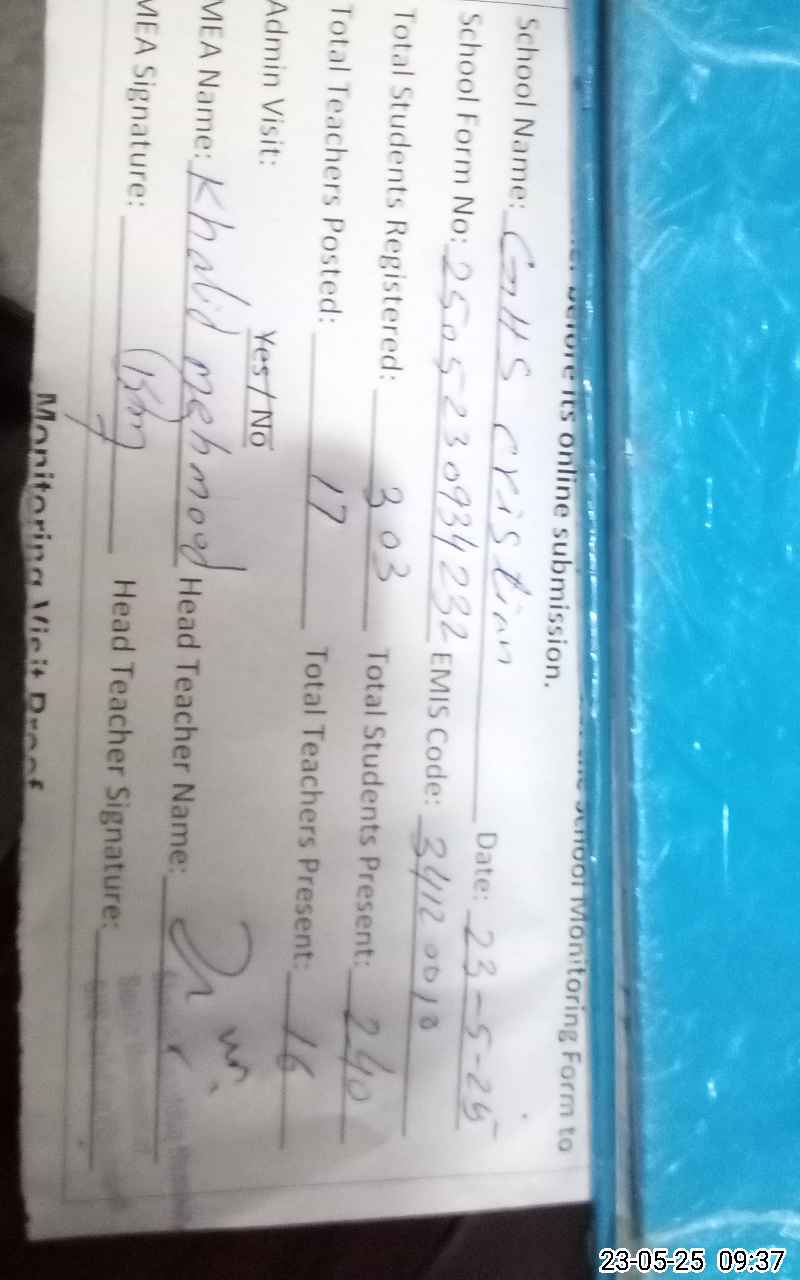 the School Monitoring Form to
before its online submission.
School Name: GHS cristian Date: 23-5-25
School Form No: 2505230934232 EMIS Code: 34120018
Total Students Registered: 303 Total Students Present: 240
Total Teachers Posted: 17 Total Teachers Present: 16
Admin Visit: Yes / No
MEA Name: Khalid mehmood Head Teacher Name:
MEA Signature: Head Teacher Signature:
Monitoring Visit Proof
23-05-25 09:37